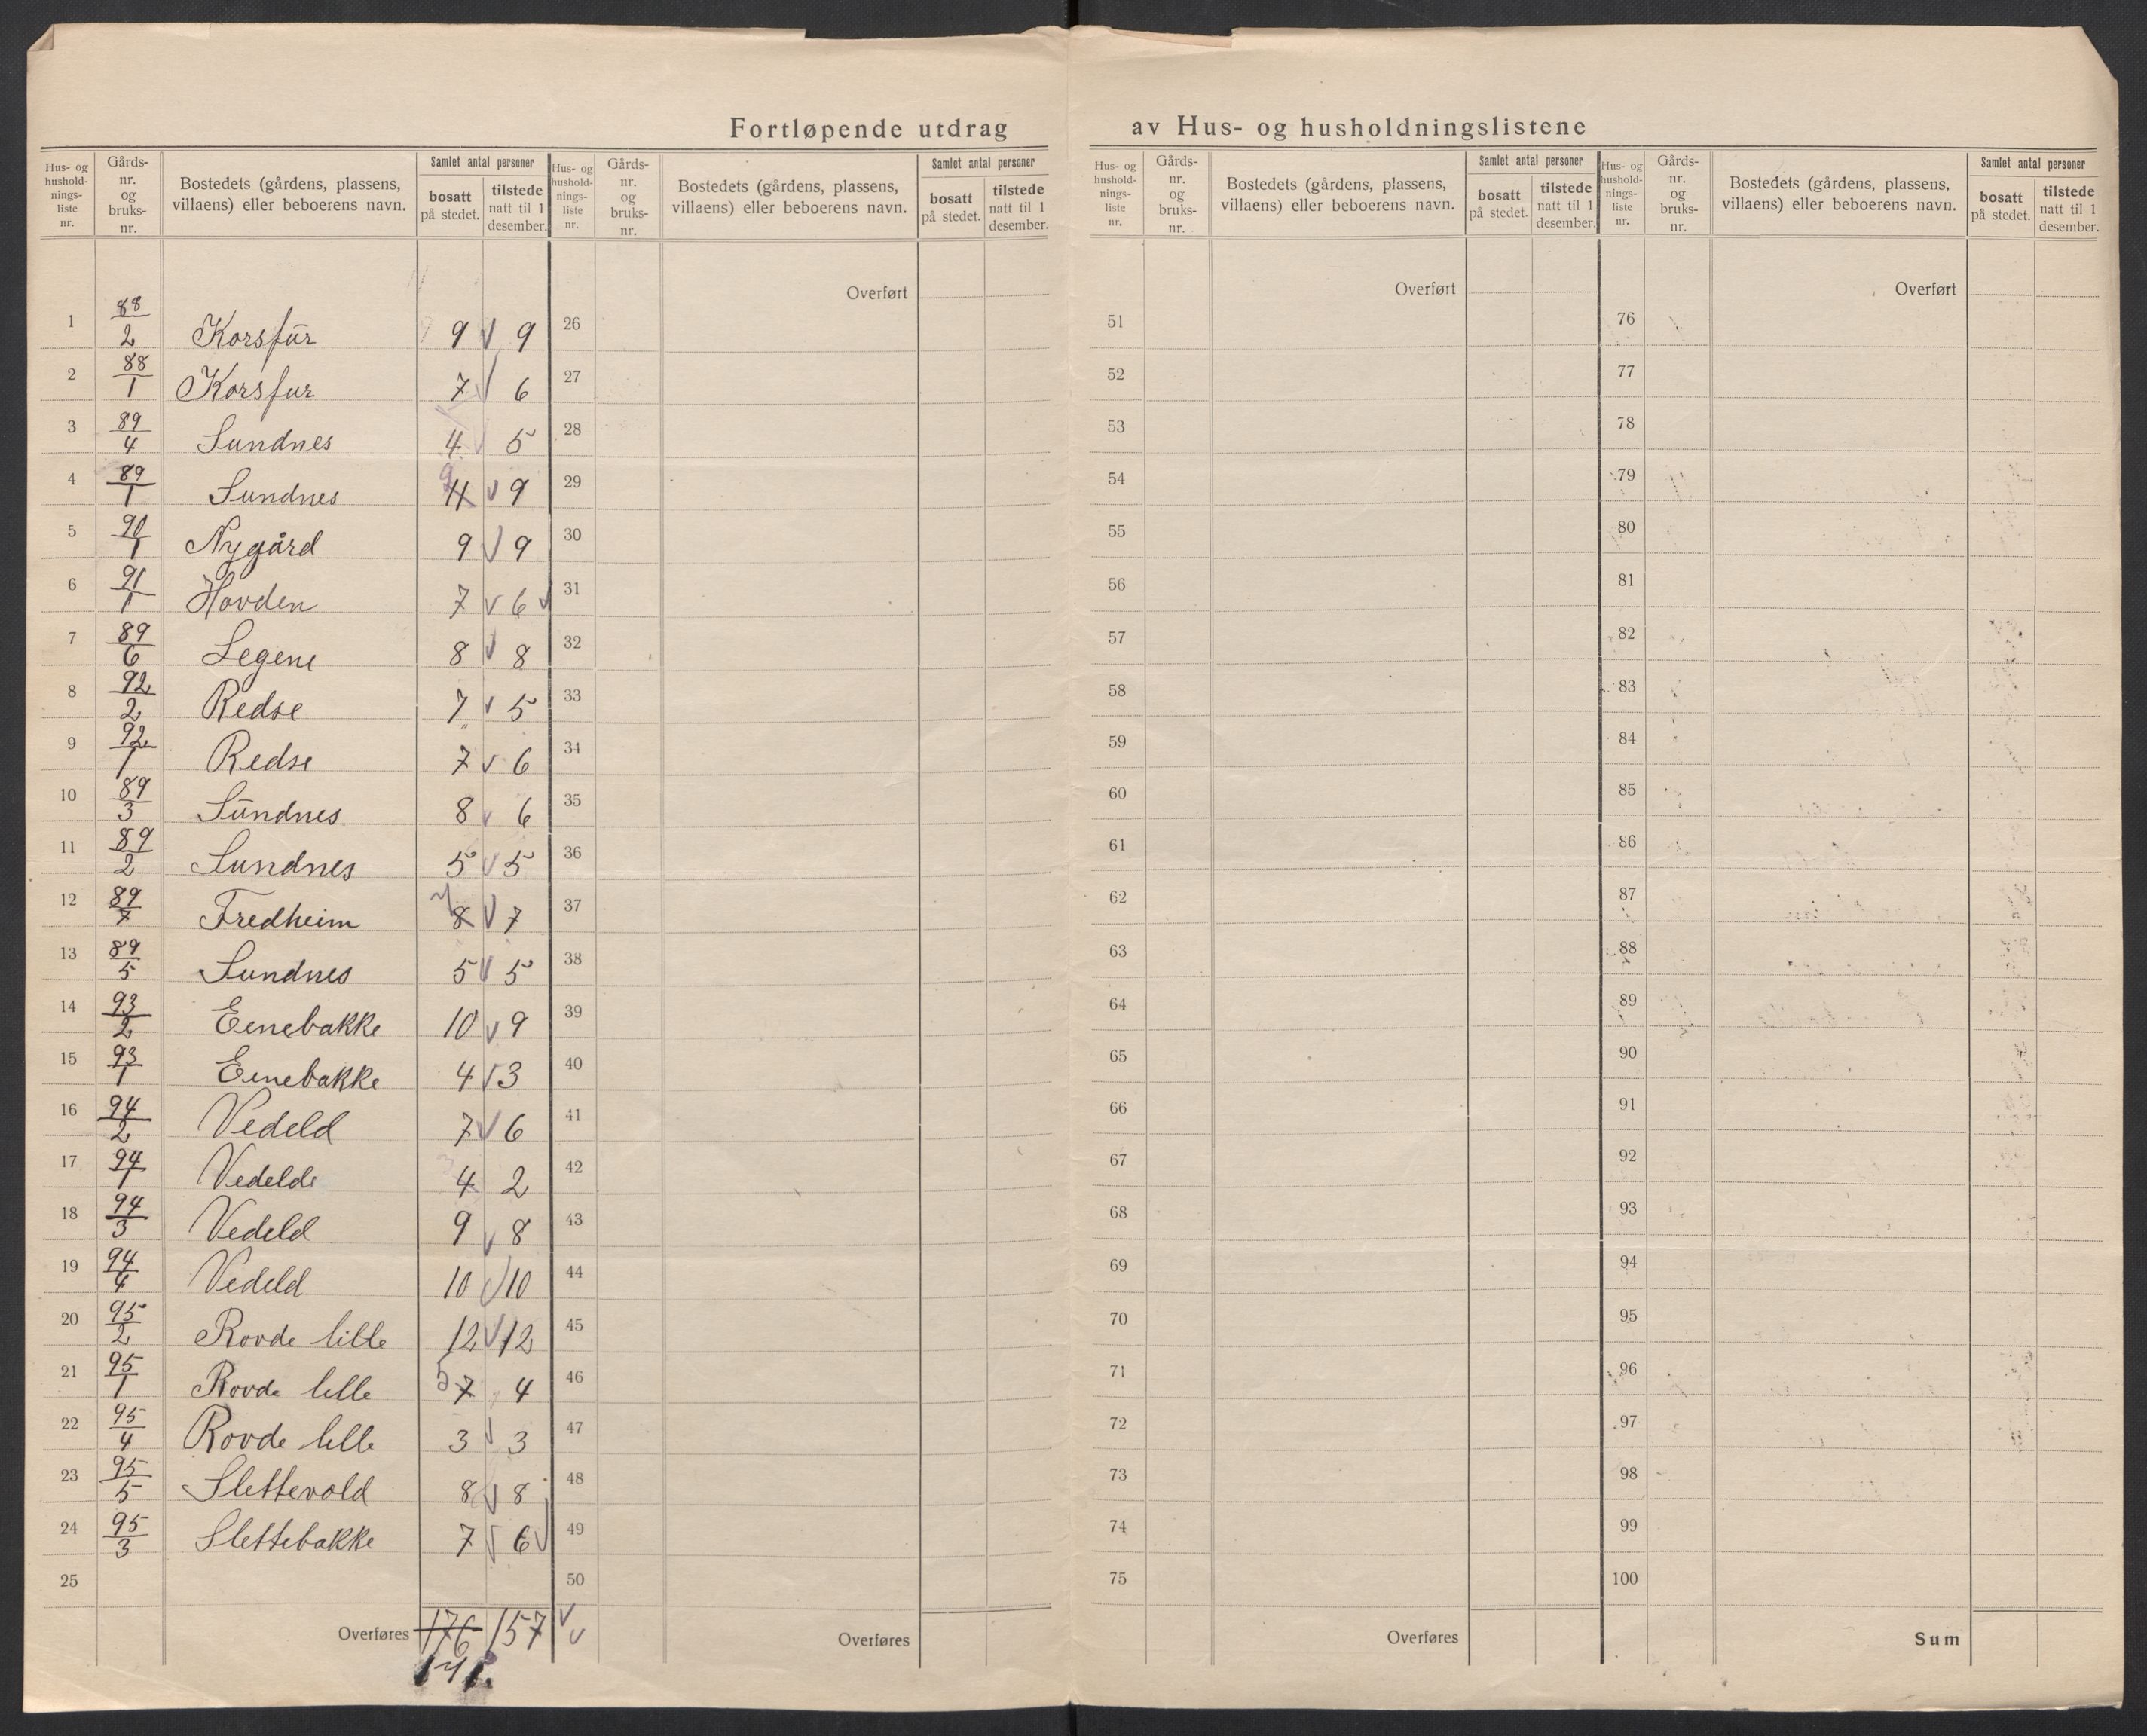 Fortløpende utdrag av Hus- og husholdningslistene
Hus- og hushold- nings- liste nr. Gårds- nr. og bruks- nr. Bostedets (gårdens, plassens, villaens) eller beboerens navn. Samlet antal personer bosatt på stedet. tilstede natt til 1 desember.
Hus- og hushold- nings- liste nr. Gårds- nr. og bruks- nr. Bostedets (gårdens, plassens, villaens) eller beboerens navn. Samlet antal personer bosatt på stedet. tilstede natt til 1 desember.
Hus- og hushold- nings- liste nr. Gårds- nr. og bruks- nr. Bostedets (gårdens, plassens, villaens) eller beboerens navn. Samlet antal personer bosatt på stedet. tilstede natt til 1 desember.
Hus- og hushold- nings- liste nr. Gårds- nr. og bruks- nr. Bostedets (gårdens, plassens, villaens) eller beboerens navn. Samlet antal personer bosatt på stedet. tilstede natt til 1 desember.
1 88/2 Korsfur 9 9
2 88/1 Korsfur 7 6
3 89/4 Sundnes 4 5
4 89/1 Sundnes 9 9
5 90/1 Nygård 9 9
6 91/1 Hovden 7 6
7 89/6 Legene 8 8
8 92/2 Redse 7 5
9 92/1 Redse 7 6
10 89/3 Sundnes 8 6
11 89/2 Sundnes 5 5
12 89/7 Fredheim 8 7
13 89/5 Sundnes 5 5
14 93/2 Eenebakke 10 9
15 93/1 Eenebakke 4 3
16 94/2 Vedeld 7 6
17 94/1 Vedelde 4 2
18 94/3 Vedeld 9 8
19 94/4 Vedeld 10 10
20 95/2 Rovde lille 12 12
21 95/1 Rovde lille 5 7 4
22 95/4 Rovde lille 3 3
23 95/5 Slettevold 8 8
24 95/3 Slettebakke 7 6
25
Overføres 176 157
Overført
26
27
28
29
30
31
32
33
34
35
36
37
38
39
40
41
42
43
44
45
46
47
48
49
50
Overføres
Overført
51
52
53
54
55
56
57
58
59
60
61
62
63
64
65
66
67
68
69
70
71
72
73
74
75
Overføres
Overført
76
77
78
79
80
81
82
83
84
85
86
87
88
89
90
91
92
93
94
95
96
97
98
99
100
Sum